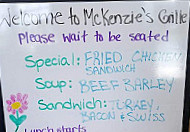 Welcome to McKenzie's Grille
Please wait to be seated
Special: FRIED CHICKEN
SANDWICH
Soup: BEEF BARLEY
Sandwich: TURKEY,
BACON & SWISS
Lunch starts